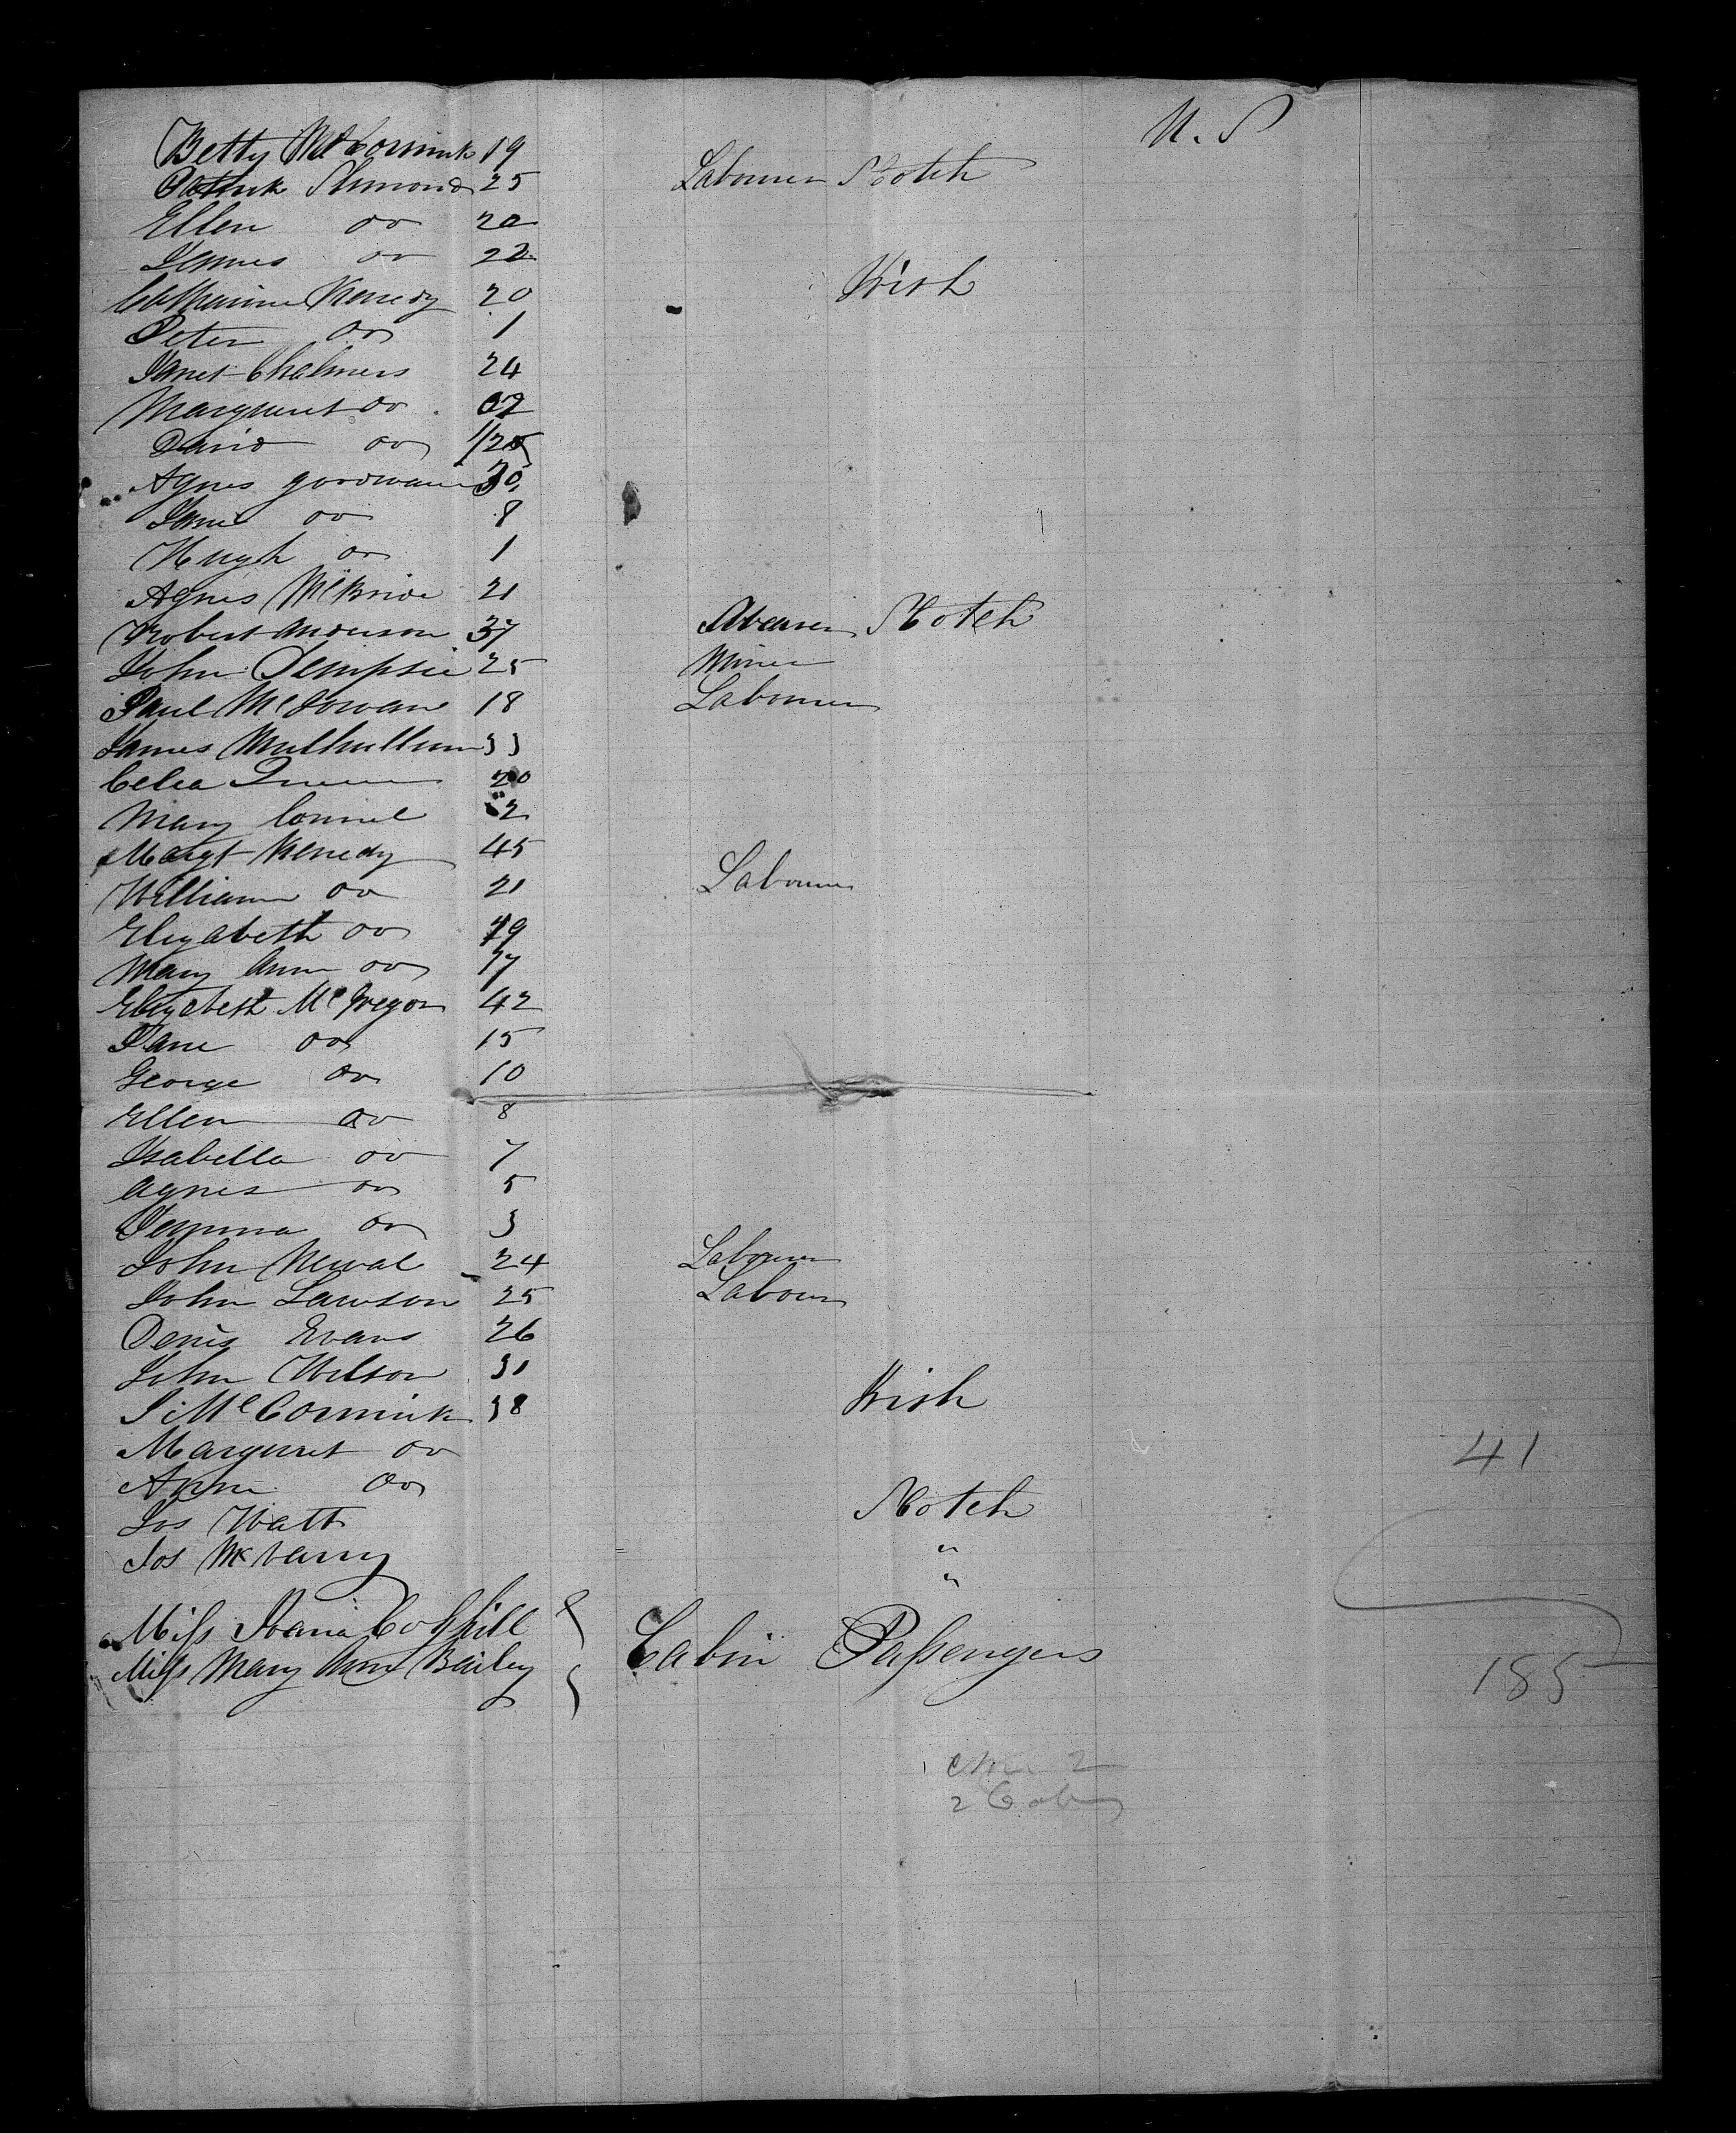 U. S
Betty McCormick 19
Patrick Simond 25 Labourer Scotch
Ellen do 20
James do 22
Catharine Kenedy 20 Irish
Peter do 1
Janet Chalmers 24
Margaret do 02
David do
Agnes goodwain 30
Jane do 8
Hugh do 1
Agnes McBride 21
Robert Anderson 37 Scotch
John Dempsie 25 Miner
Paul McGowan 18 Labourer
James Mulhullum 33
Celia 20
Mary Connel 2
Margt Kenedy 45
William do 21 Labourer
Elizabeth do 19
Mary Ann do 17
Elizabeth McGregor 42
Jane do 15
George do 10
Ellen do 8
Isabella do 7
Agnes do 5
Jemima do 3
John Newal 24 Labourer
John Lawson 25 Labour
Denis Evans 26
John Wilson 31
J McCormick 38 Irish
Margaret do 41
Ann do
Jos Watt Scotch
Jos "
"
Miss Joana Coghill
Miss Mary Ann Bailey Cabin Passengers
185
2
2 Cab